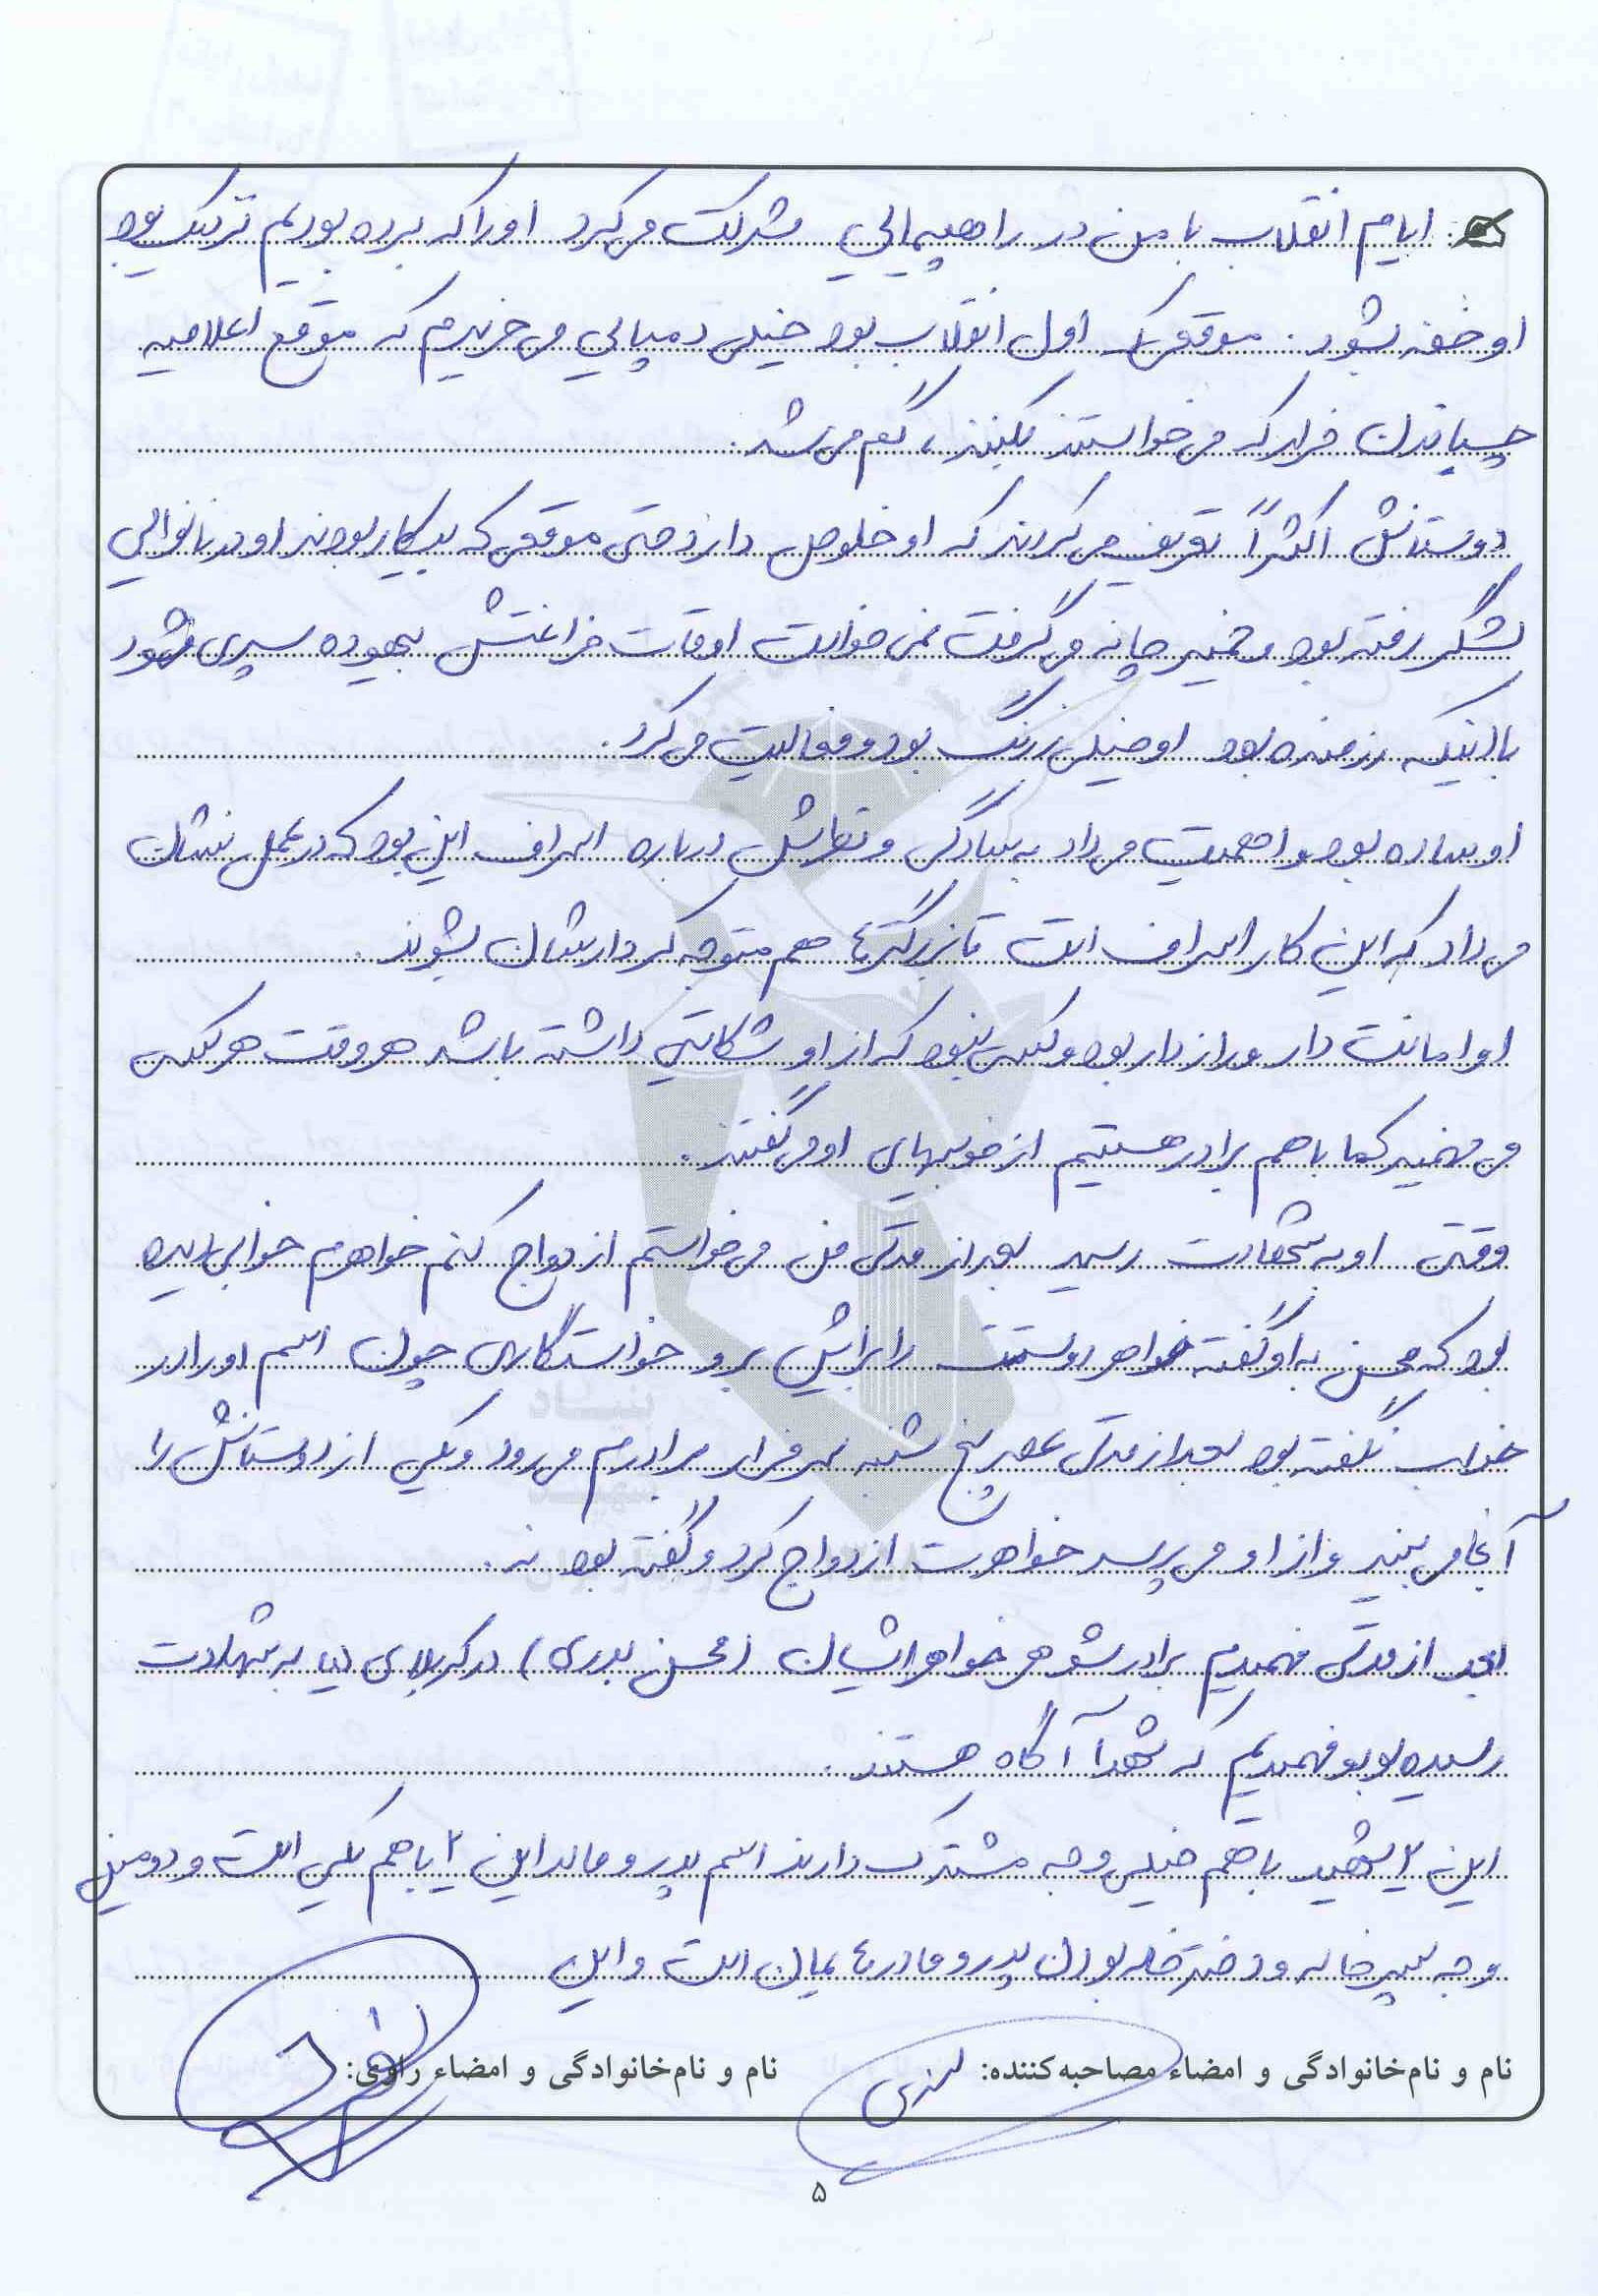 ایام انقلاب با من در راهپیمایی شرکت می کرد او را که برده بودیم نزدیک بود
او خفه بشود. موقعی که اول انقلاب بود خیلی دمپایی می خریدم که موقع اعلامیه
چسباندن فرار که می خواستند بکنند، گم می شد.
دوستانش اکثراً تعریف می کردند که او خلوص دارد حتی موقعی که بیکار بودند او در نانوائی
لشگر رفته بود و خمیر چانه می گرفت نمی خواست اوقات فراغتش بیهوده سپری شود
با اینکه رزمنده بود او خیلی زرنگ بود و فعالیت می کرد.
او ساده بود و اهمیت می داد به سادگی و نظرش درباره اسراف این بود که در عمل نشان
می داد که این کار اسراف است تا بزرگترها هم متوجه کردارشان بشوند.
او امانت دار و رازدار بود و کسی نبود که از او شکایتی داشته باشد هر وقت هر کسی
می فهمید که ما با هم برادر هستیم از خوبیهای او می گفتند.
وقتی او به شهادت رسید بعد از مدتی من می خواستم ازدواج کنم خواهرم خوابی دیده
بود که محسن به او گفته خواهر دوستت را برایش برو خواستگاری چون اسم او را در
خواب نگفته بود بعد از مدتی عصر پنج شنبه سر مزار برادرم می رود و یکی از دوستانش را
آنجا می بیند و از او می پرسد خواهرت ازدواج کرد و گفته بود نه.
بعد از مدتی فهمیدیم برادر شوهر خواهر ایشان (محسن بدری) در کربلای به شهادت
رسیده بود و فهمیدیم که شهدا آگاه هستند.
این ۲ شهید با هم خیلی وجه مشترک دارند اسم پدر و مادر این ۲ با هم یکی است و دومین
وجه پسر خاله و دختر خاله بودن پدر و مادرهایمان است و این
نام و نام‌خانوادگی و امضاء مصاحبه‌کننده:
نام و نام‌خانوادگی و امضاء راوی:
۵